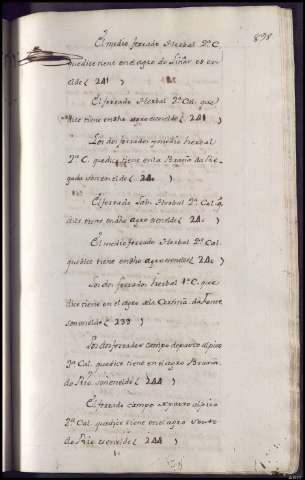 898
El medio ferrado Herbal 2ª C.
que dice tiene en el agro de Liñar es en
el de (241)
El ferrado Herbal 2ª Cal. que
dice tiene en dho agro es en el de (241)
Los dos ferrados y medio herbal
2ª C. que dice tiene en la Braña da Re
gada son en el de (24
El ferrado Herbal 2ª Cal. q
dice tiene en dho agro es en el de (24
El medio ferrado Herbal 2ª Cal.
que dice tiene en dho agro es en el de (24
Los dos ferrados herbal 1ª C. que
dice tiene en el agro de la Cortiña da fonte
son en el de (239)
Los dos ferrados campo de pasto al pico
2ª Cal. que dice tiene en el agro Braña
do Rio son en el de (244)
El ferrado campo de pasto al pico
2ª Cal. que dice tiene en el agro Souto
do Rio es en el de (244)